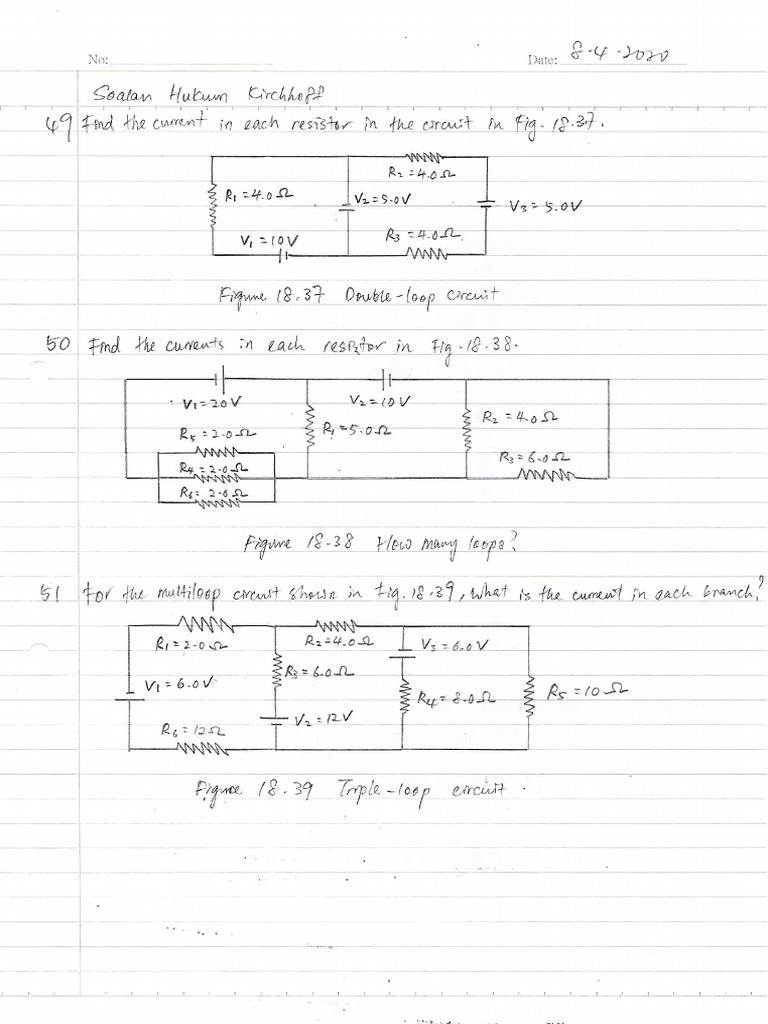 No:
Date: 8-4-2020
Soalan Hukum Kirchhoff
49 Find the current in each resistor in the circuit in Fig. 18.37.
R2 = 4.0Ω
R1 = 4.0Ω
V2 = 5.0V
V3 = 5.0V
V1 = 10V
R3 = 4.0Ω
Figure 18.37 Double-loop circuit
50 Find the currents in each resistor in Fig. 18.38.
V1 = 20V
V2 = 10V
R1 = 5.0Ω
R2 = 4.0Ω
R5 = 2.0Ω
R3 = 6.0Ω
R4 = 2.0Ω
R6 = 2.0Ω
Figure 18-38 How many loops?
51 For the multiloop circuit shown in Fig. 18.39, what is the current in each branch?
R1 = 2.0Ω
R2 = 4.0Ω
V3 = 6.0V
R3 = 6.0Ω
V1 = 6.0V
R4 = 8.0Ω
R5 = 10Ω
V2 = 12V
R6 = 12Ω
Figure 18.39 Triple-loop circuit.